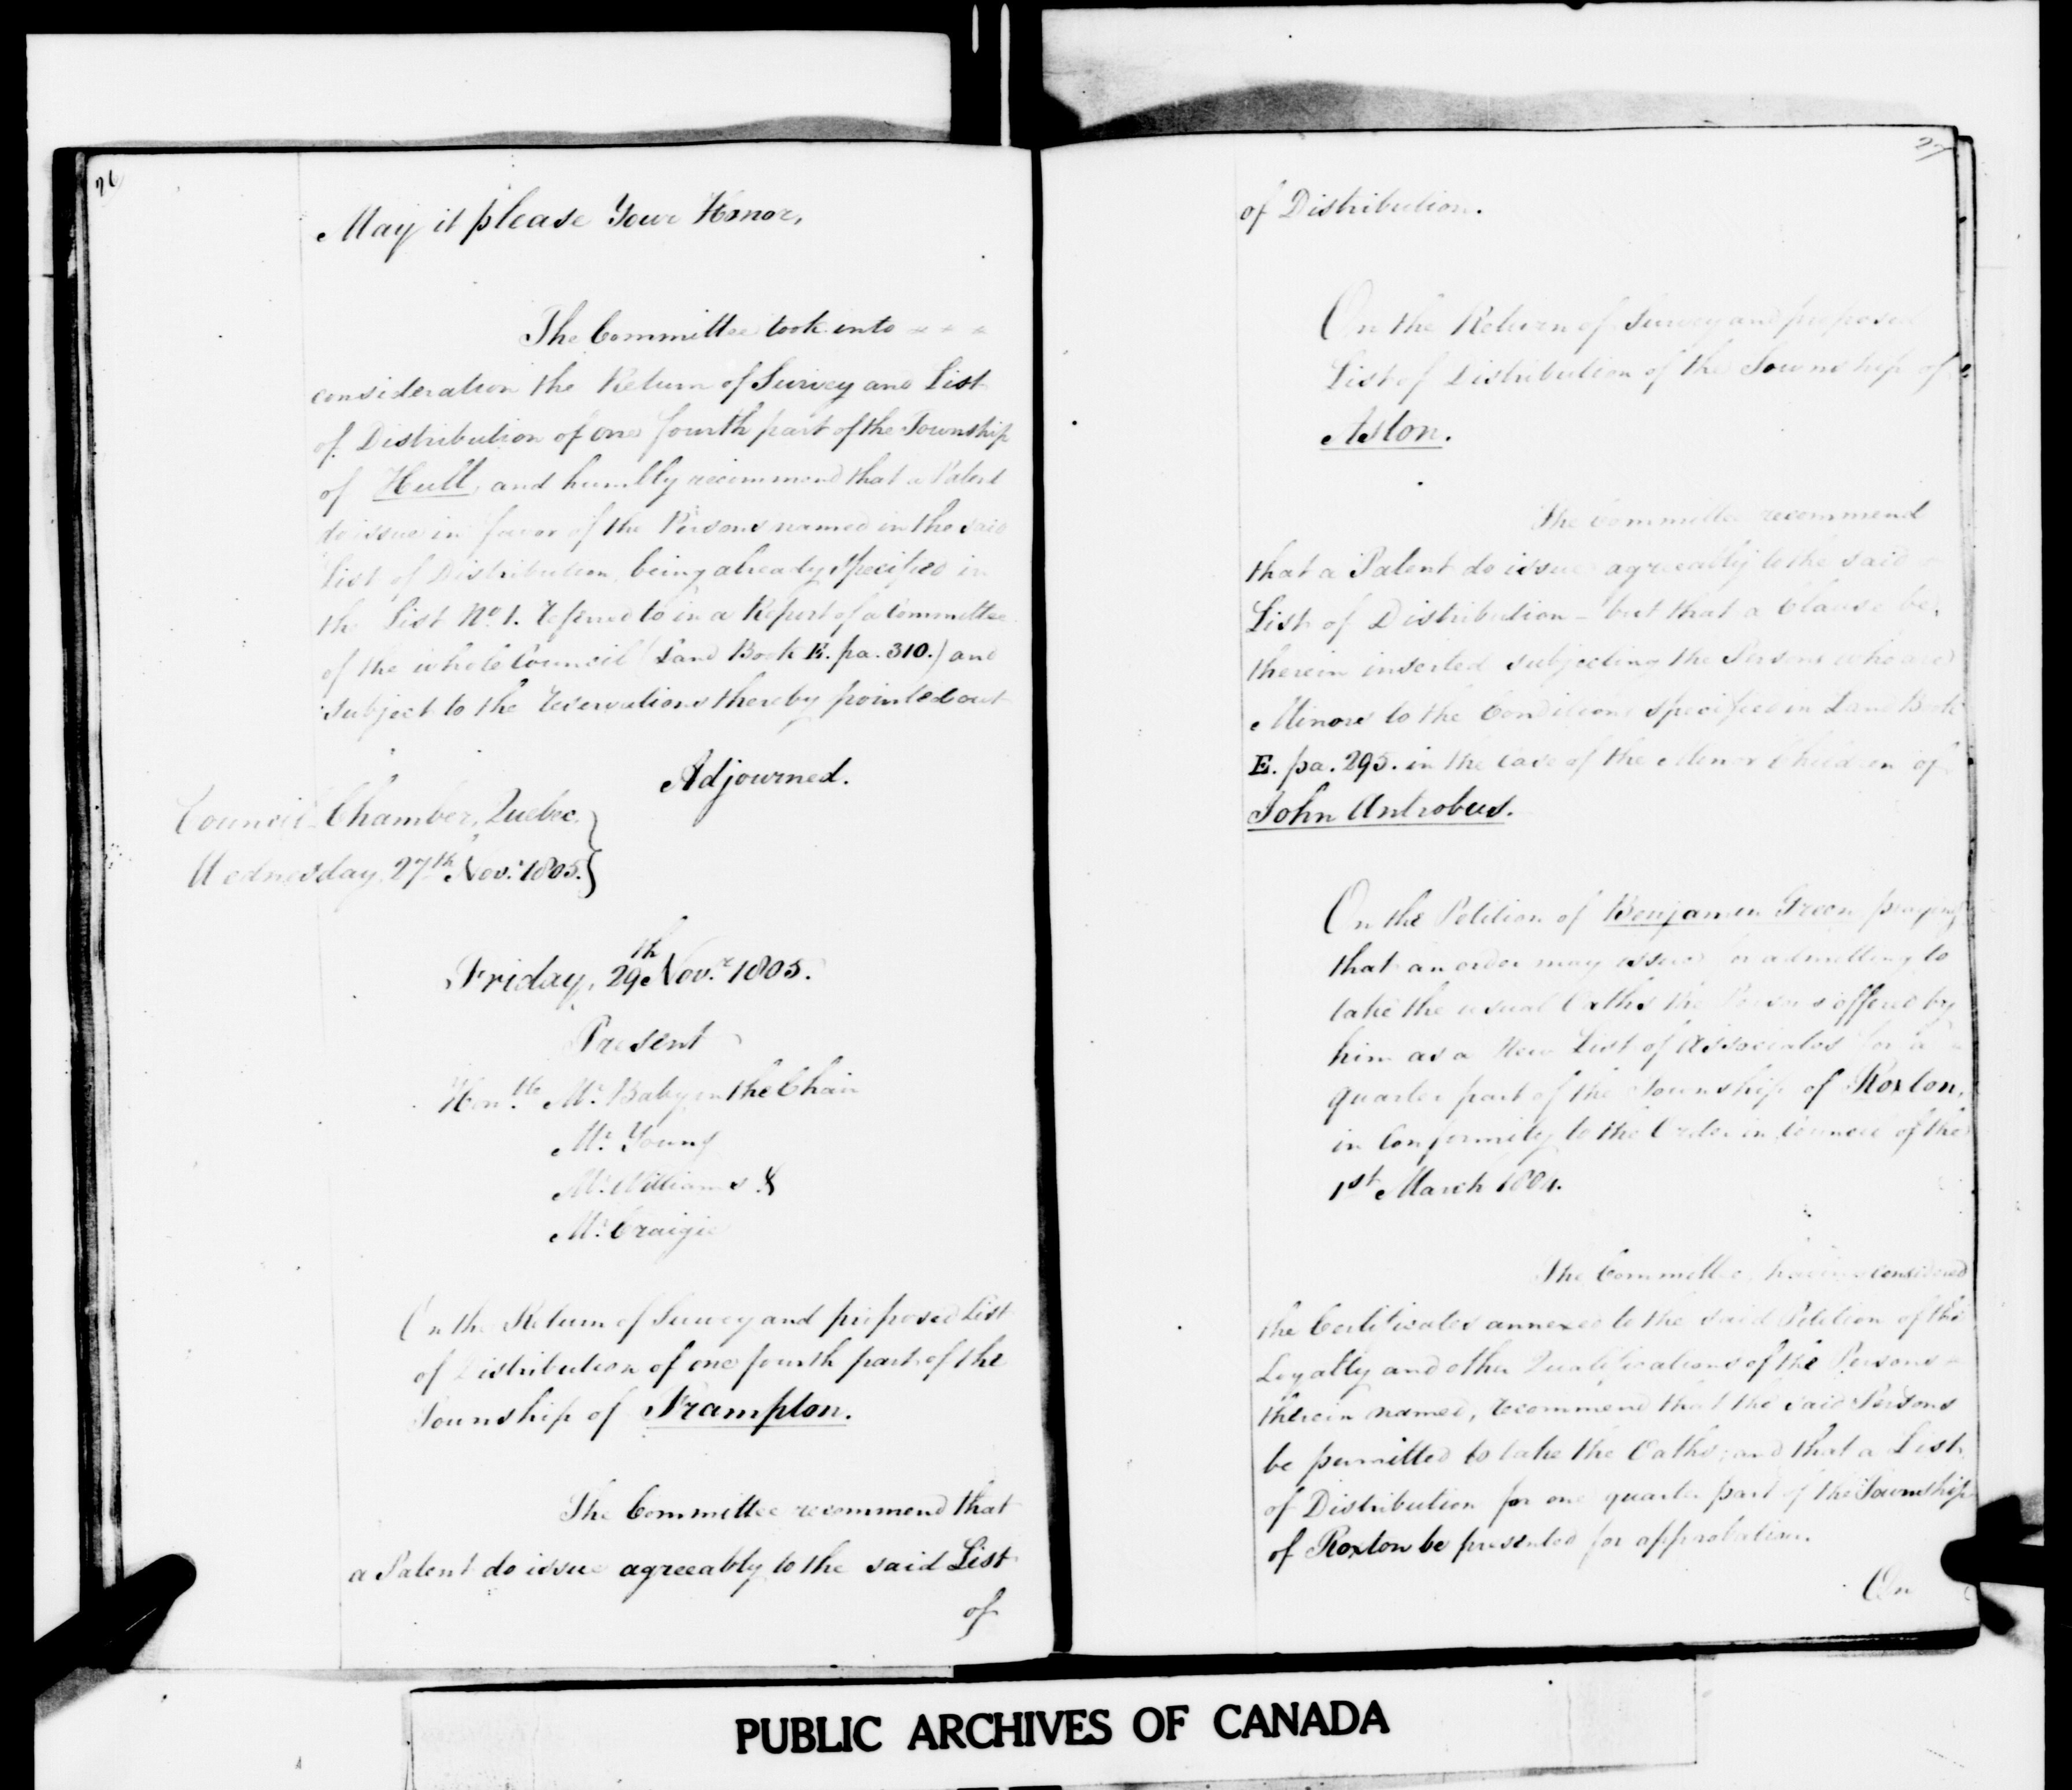 26
May it please Your Honor,
The Committee took into
consideration the Return of Survey and List
of Distribution of one fourth part of the Township
of Hull, and humbly recommend that a Patent
do issue in favor of the Persons named in the said
List of Distribution, being already specified in
the List No. 1. referred to in a Report of a Committee
of the whole Council (Land Book E. pa. 310.) and
subject to the reservations thereby pointed out
Adjourned.
Council Chamber, Quebec.
Wednesday, 27th Novr. 1805.
Friday, 29th Novr. 1805.
Present
Honble Mr. Baby in the Chair
Mr. Young
Mr. Williams &
Mr. Craigie
On the Return of Survey and proposed List
of Distribution of one fourth part of the
Township of Frampton.
The Committee recommend that
a Patent do issue agreeably to the said List
of
27
of Distribution.
On the Return of Survey and proposed
List of Distribution of the Township of
Aston.
The Committee recommend
that a Patent do issue agreeably to the said
List of Distribution - but that a Clause be
therein inserted subjecting the Persons who are
Minors to the Conditions specified in Land Book
E. pa. 295. in the Case of the Minor Children of
John Antrobus.
On the Petition of Benjamin Green praying
that an order may issue for admitting to
take the usual Oaths the Persons offered by
him as a New List of Associates for a
quarter part of the Township of Roxton,
in Conformity to the Order in Council of the
1st March 1804.
The Committee having considered
the Certificates annexed to the said Petition of the
Loyalty and other Qualifications of the Persons
therein named, recommend that the said Persons
be permitted to take the Oaths; and that a List
of Distribution for one quarter part of the Township
of Roxton be presented for approbation.
On
PUBLIC ARCHIVES OF CANADA